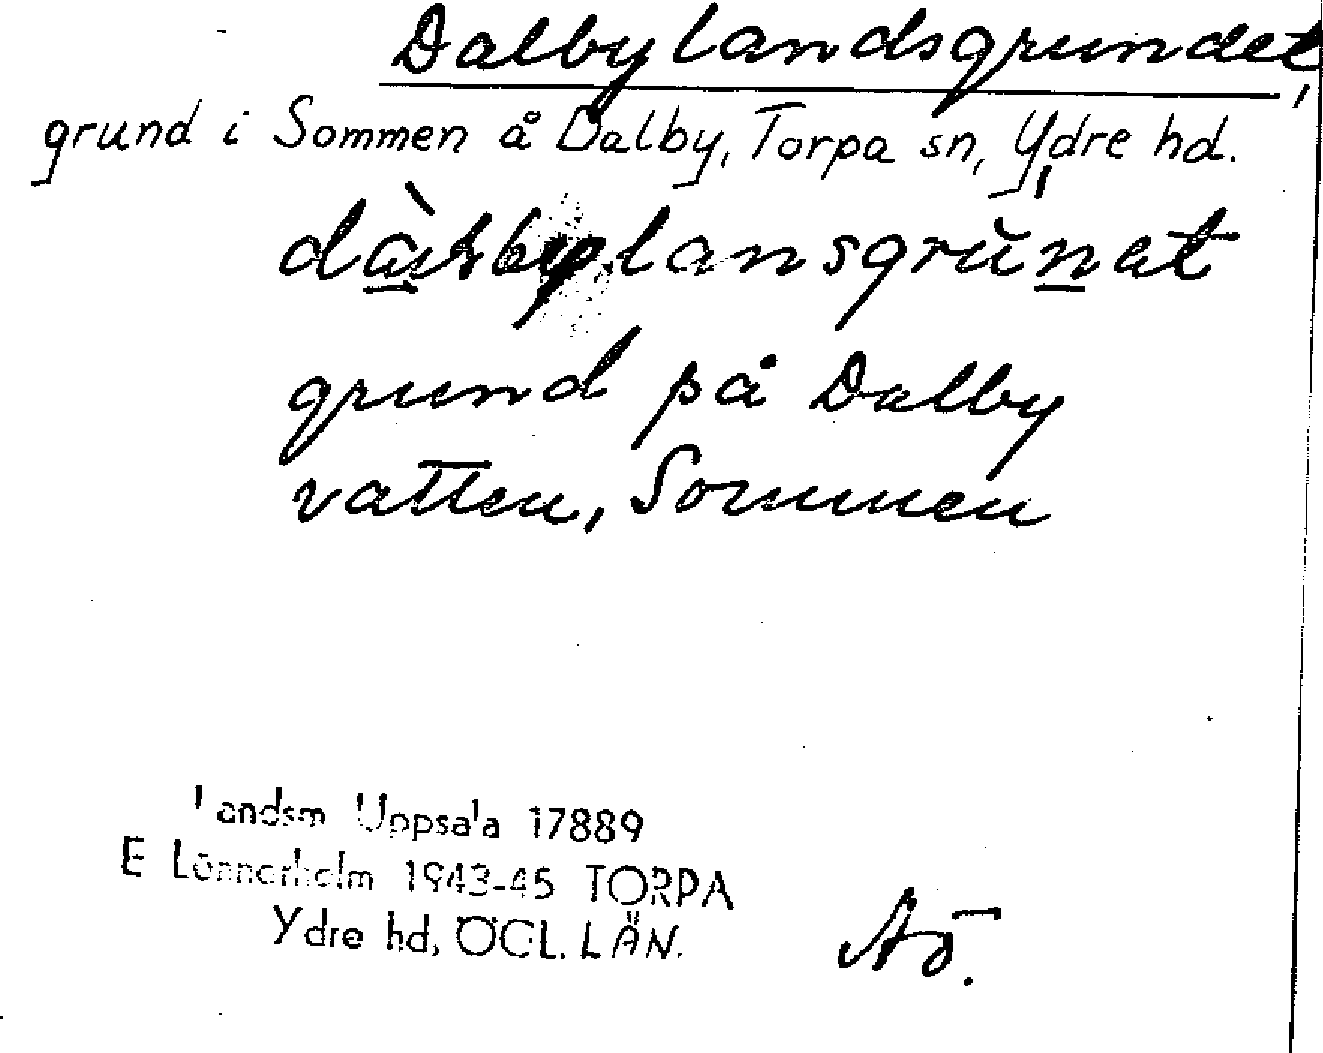 Dalbylandsgrundet,
grund i Sommen å Dalby, Torpa sn, Ydre hd.
grund på Dalby
vatten, Sommen
Landsm Uppsala 17889
E Lönnerholm 1943-45 TORPA
Ydre hd, ÖGL. LÄN.